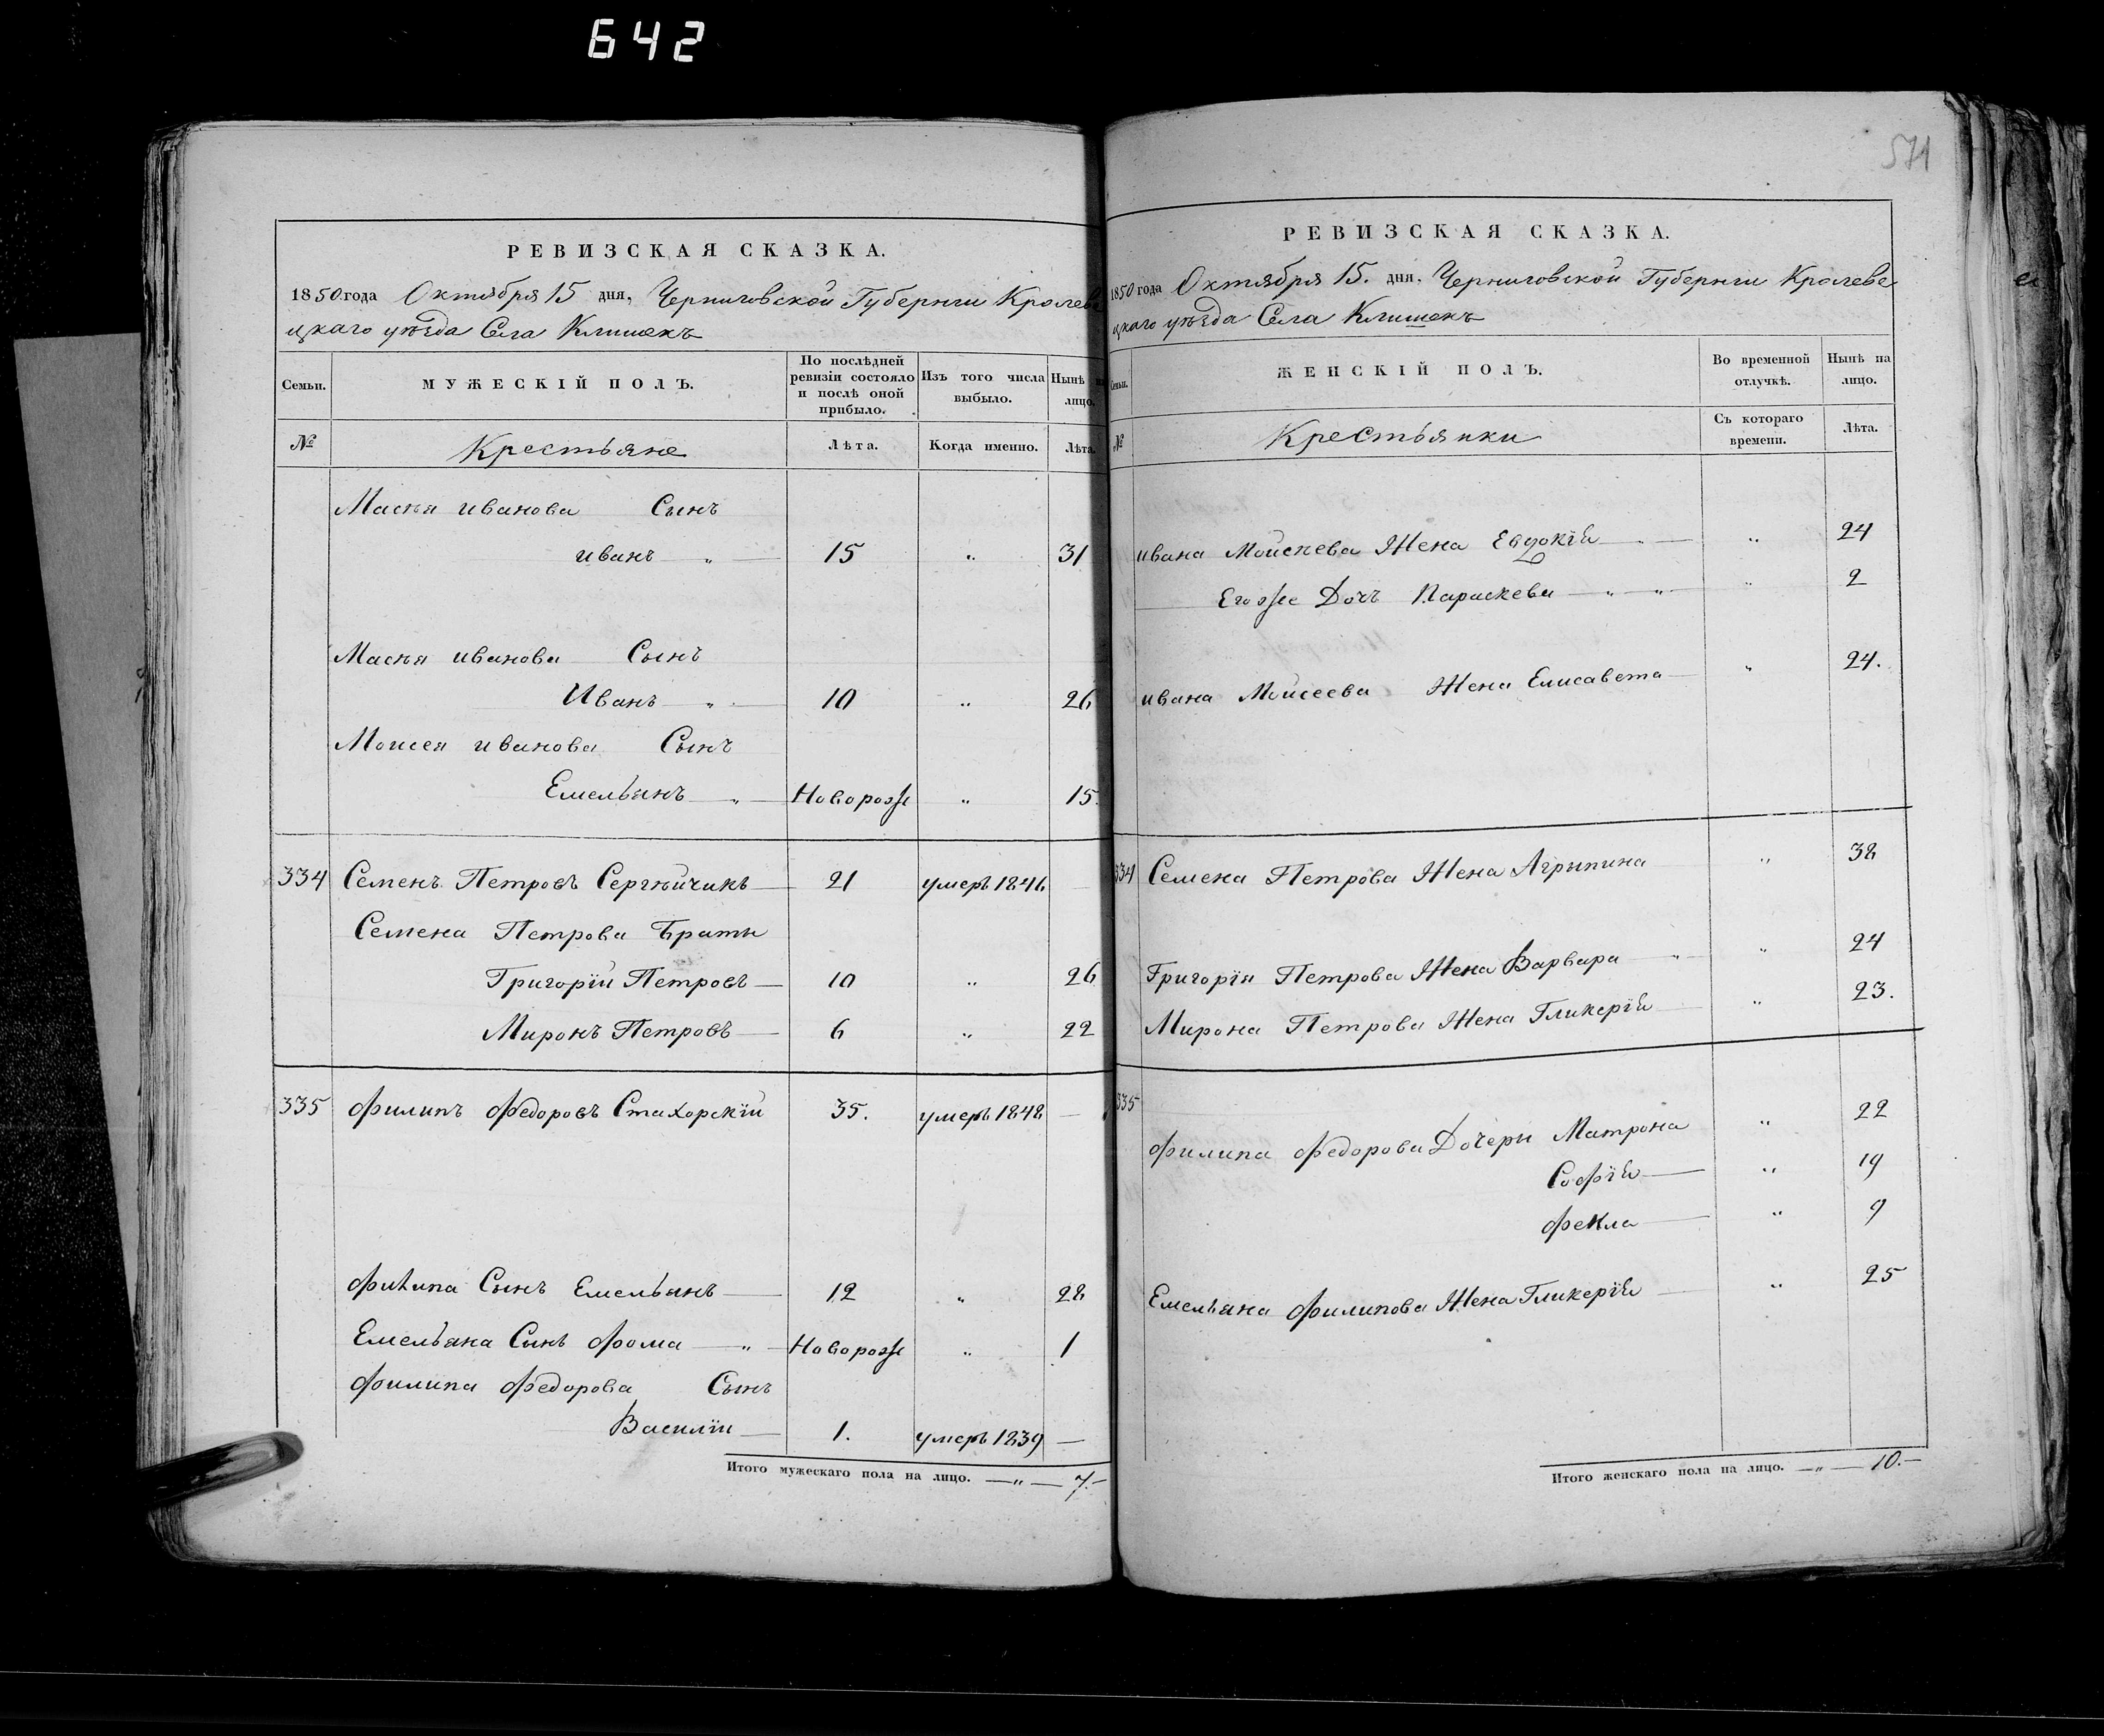 642
РЕВИЗСКАЯ СКАЗКА.
1850 года Октября 15 дня, Черниговской Губернии Кролеве
цкаго уѣзда Села Клишекъ
Семьи.
МУЖЕСКІЙ ПОЛЪ.
По послѣдней ревизіи состояло и послѣ оной прибыло.
Изъ того числа выбыло.
Нынѣ на лицо.
№ Крестьяне Лѣта. Когда именно. Лѣта.
Иванова Сынъ
Иванъ „ 15 „ 31
Иванова Сынъ
Иванъ „ 10 „ 26
Моисея Иванова Сынъ
Емельянъ „ Новорож „ 15.
334 Семенъ Петровъ Сергѣйчикъ 21 умеръ 1846 —
Семена Петрова Браты
Григорій Петровъ 10 „ 26
Миронъ Петровъ 6 „ 22
335 Филипъ Федоровъ Стахорскій 35. умеръ 1848 —
Филипа Сынъ Емельянъ 12 „ 28
Емельяна Сынъ Фома „ Новорож „ 1
Филипа Федорова Сынъ
Василій 1. умеръ 1839 —
Итого мужескаго пола на лицо. — „ — 7. —
571
РЕВИЗСКАЯ СКАЗКА.
1850 года Октября 15. дня, Черниговской Губернии Кролеве
цкаго уѣзда Села Клишекъ
Семьи.
ЖЕНСКІЙ ПОЛЪ.
Во временной отлучкѣ.
Нынѣ на лицо.
№ Крестьянки Съ котораго времени. Лѣта.
Ивана Моисеева Жена Евдокія „ 24
Его же Дочь Параскева „ „ „ 2
Ивана Моисеева Жена Елисавета „ 24.
334 Семена Петрова Жена Агрыпина „ 38
Григорія Петрова Жена Варвара „ „ 24
Мирона Петрова Жена Гликерія „ 23.
335
Филипа Федорова Дочери Матрона „ 22
Софія „ 19
Фекла „ 9
Емельяна Филипова Жена Гликерія „ 25
Итого женскаго пола на лицо. — „ — 10. —